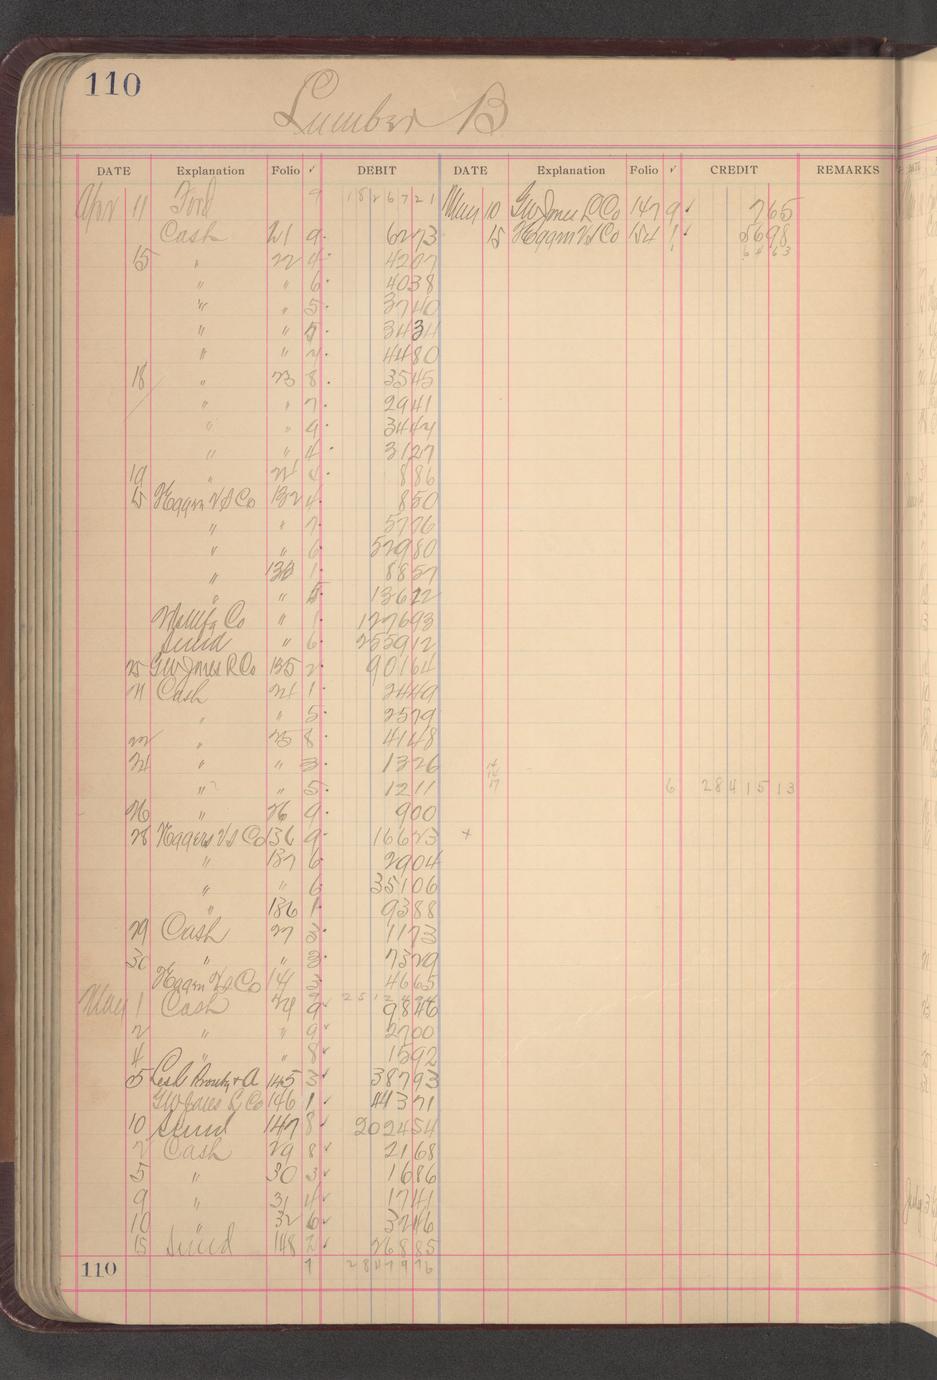 110
Lumber B
DATE Explanation Folio ✓ DEBIT DATE Explanation Folio ✓ CREDIT REMARKS
Apr 11 Ford 9 1826721 May 10 GW Jones L Co 147 9 ✓ 765
Cash 21 9 6273 15 154 1 ✓ 5698
15 " 22 4 4207 6463
" " 6 4038
" " 5 3740
" " 5 3434
" " 2 4480
18 " 23 8 3545
" " 7 2941
" " 9 3444
" " 4 3127
19 " 24 886
15 132 4 850
" " 7 5776
" " 6 57980
" 133 1 8857
" " 5 13622
Mfg Co " 1 127693
Sund " 6 255912
25 GW Jones L Co 135 2 90164
21 Cash 24 1 2449
" " 5 2579
22 " 25 8 4148
24 " " 3 1326
" " 5 1211 17 6 2841513
26 " 26 9 900
28 136 9 16623 +
" 137 6 2904
" " 6 35106
" 136 1 9388
29 Cash 27 3 1173
30 " " 3 7329
141 3 4665
May 1 Cash 29 9 ✓ 9846
2 " " 9 ✓ 2700
4 " " 8 ✓ 1592
5 145 3 ✓ 38793
GW Jones L Co 146 1 ✓ 41371
10 Sund 147 8 ✓ 202454
2 Cash 29 8 ✓ 2168
5 " 30 3 ✓ 1686
9 " 31 4 ✓ 1741
10 " 32 6 ✓ 3246
15 Sund 148 2 ✓ 26885
110 7 2847976